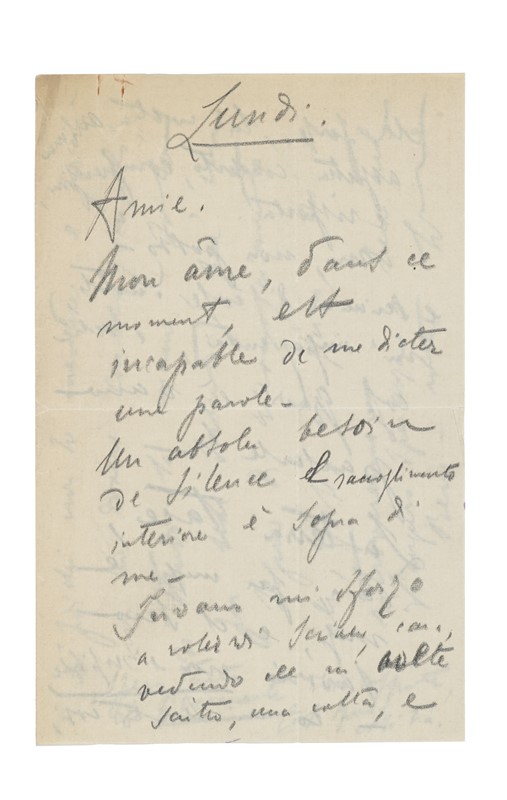 Lundi.
Amie.
Mon âme, dans ce
moment, est
incapable de me dicter
une parole -
Un absolu besoin
de silence e raccoglimento
interiore è sopra di
me -
Invano mi sforzo
a volervi scriver,
vedendo che mi avete
scritto, una volta, e